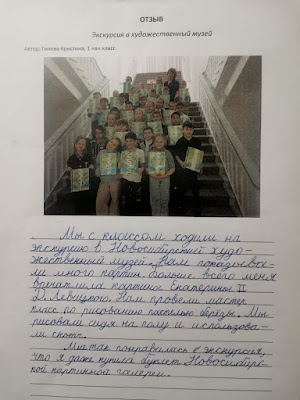 ОТЗЫВ
Экскурсия в художественный музей
Автор: Гилева Кристина, 1 нач класс
Мы с классом ходили на
экскурсию в Новосибирский худо-
жественный музей. Нам показыва-
ли много картин. Больше всего меня
впечатлила картина Екатерины II
Д. Левицкого. Нам провели мастер
класс по рисованию пастелью берёзы. Мы
рисовали сидя на полу и использова-
ли скотч.
Мы так понравилась экскурсия,
что я даже купила буклет Новосибирс-
кой картинной галереи.